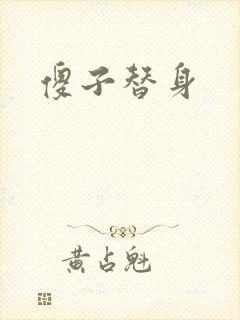 傻子替身
黄占魁